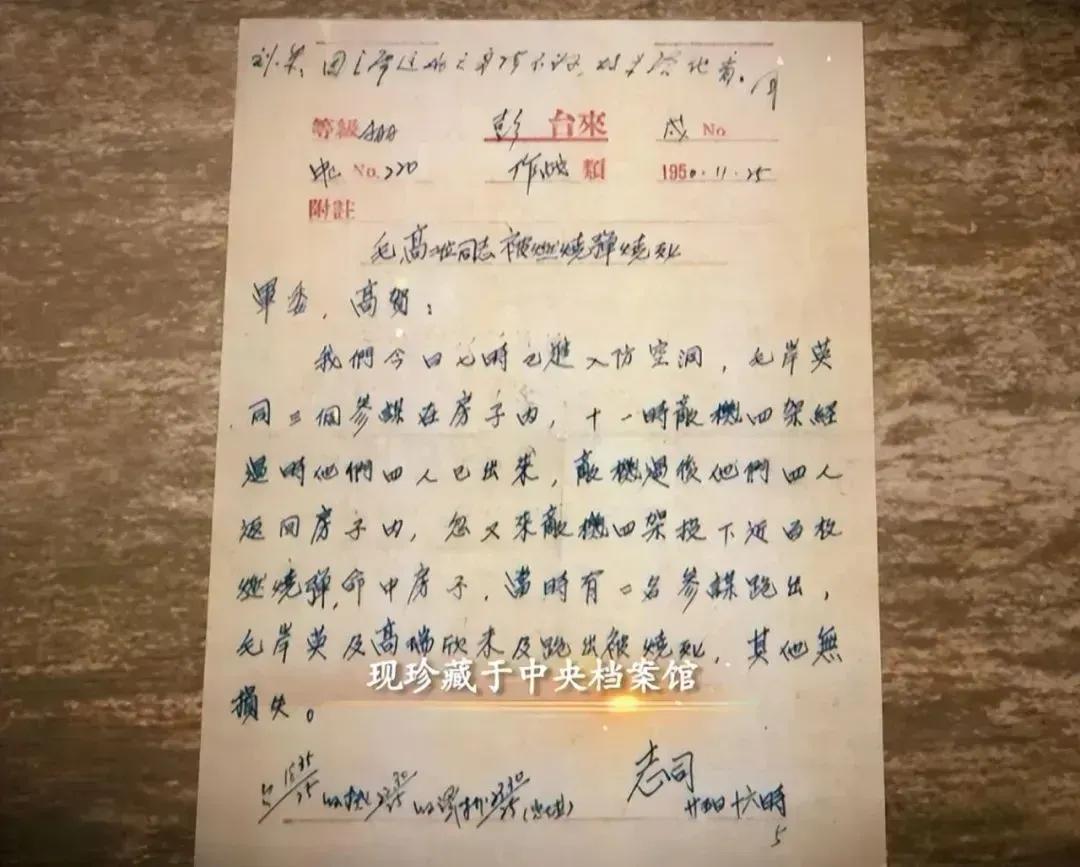 等級 AAA 彭 台來 戌 No.
No. 220 作戰 類 1950.11.25
附註
毛高二位同志被燃燒彈燒死
軍委，高賀：
我們今日七時已進入防空洞，毛岸英
同三個參謀在房子內，十一時敵機四架經
過時他們四人已出來，敵機過後他們四人
返回房子內，忽又來敵機四架投下近百枚
燃燒彈，命中房子，當時有二名參謀跑出，
毛岸英及高瑞欣未及跑出被燒死，其他無
損失。
现珍藏于中央档案馆
志司
廿五日十六時
5